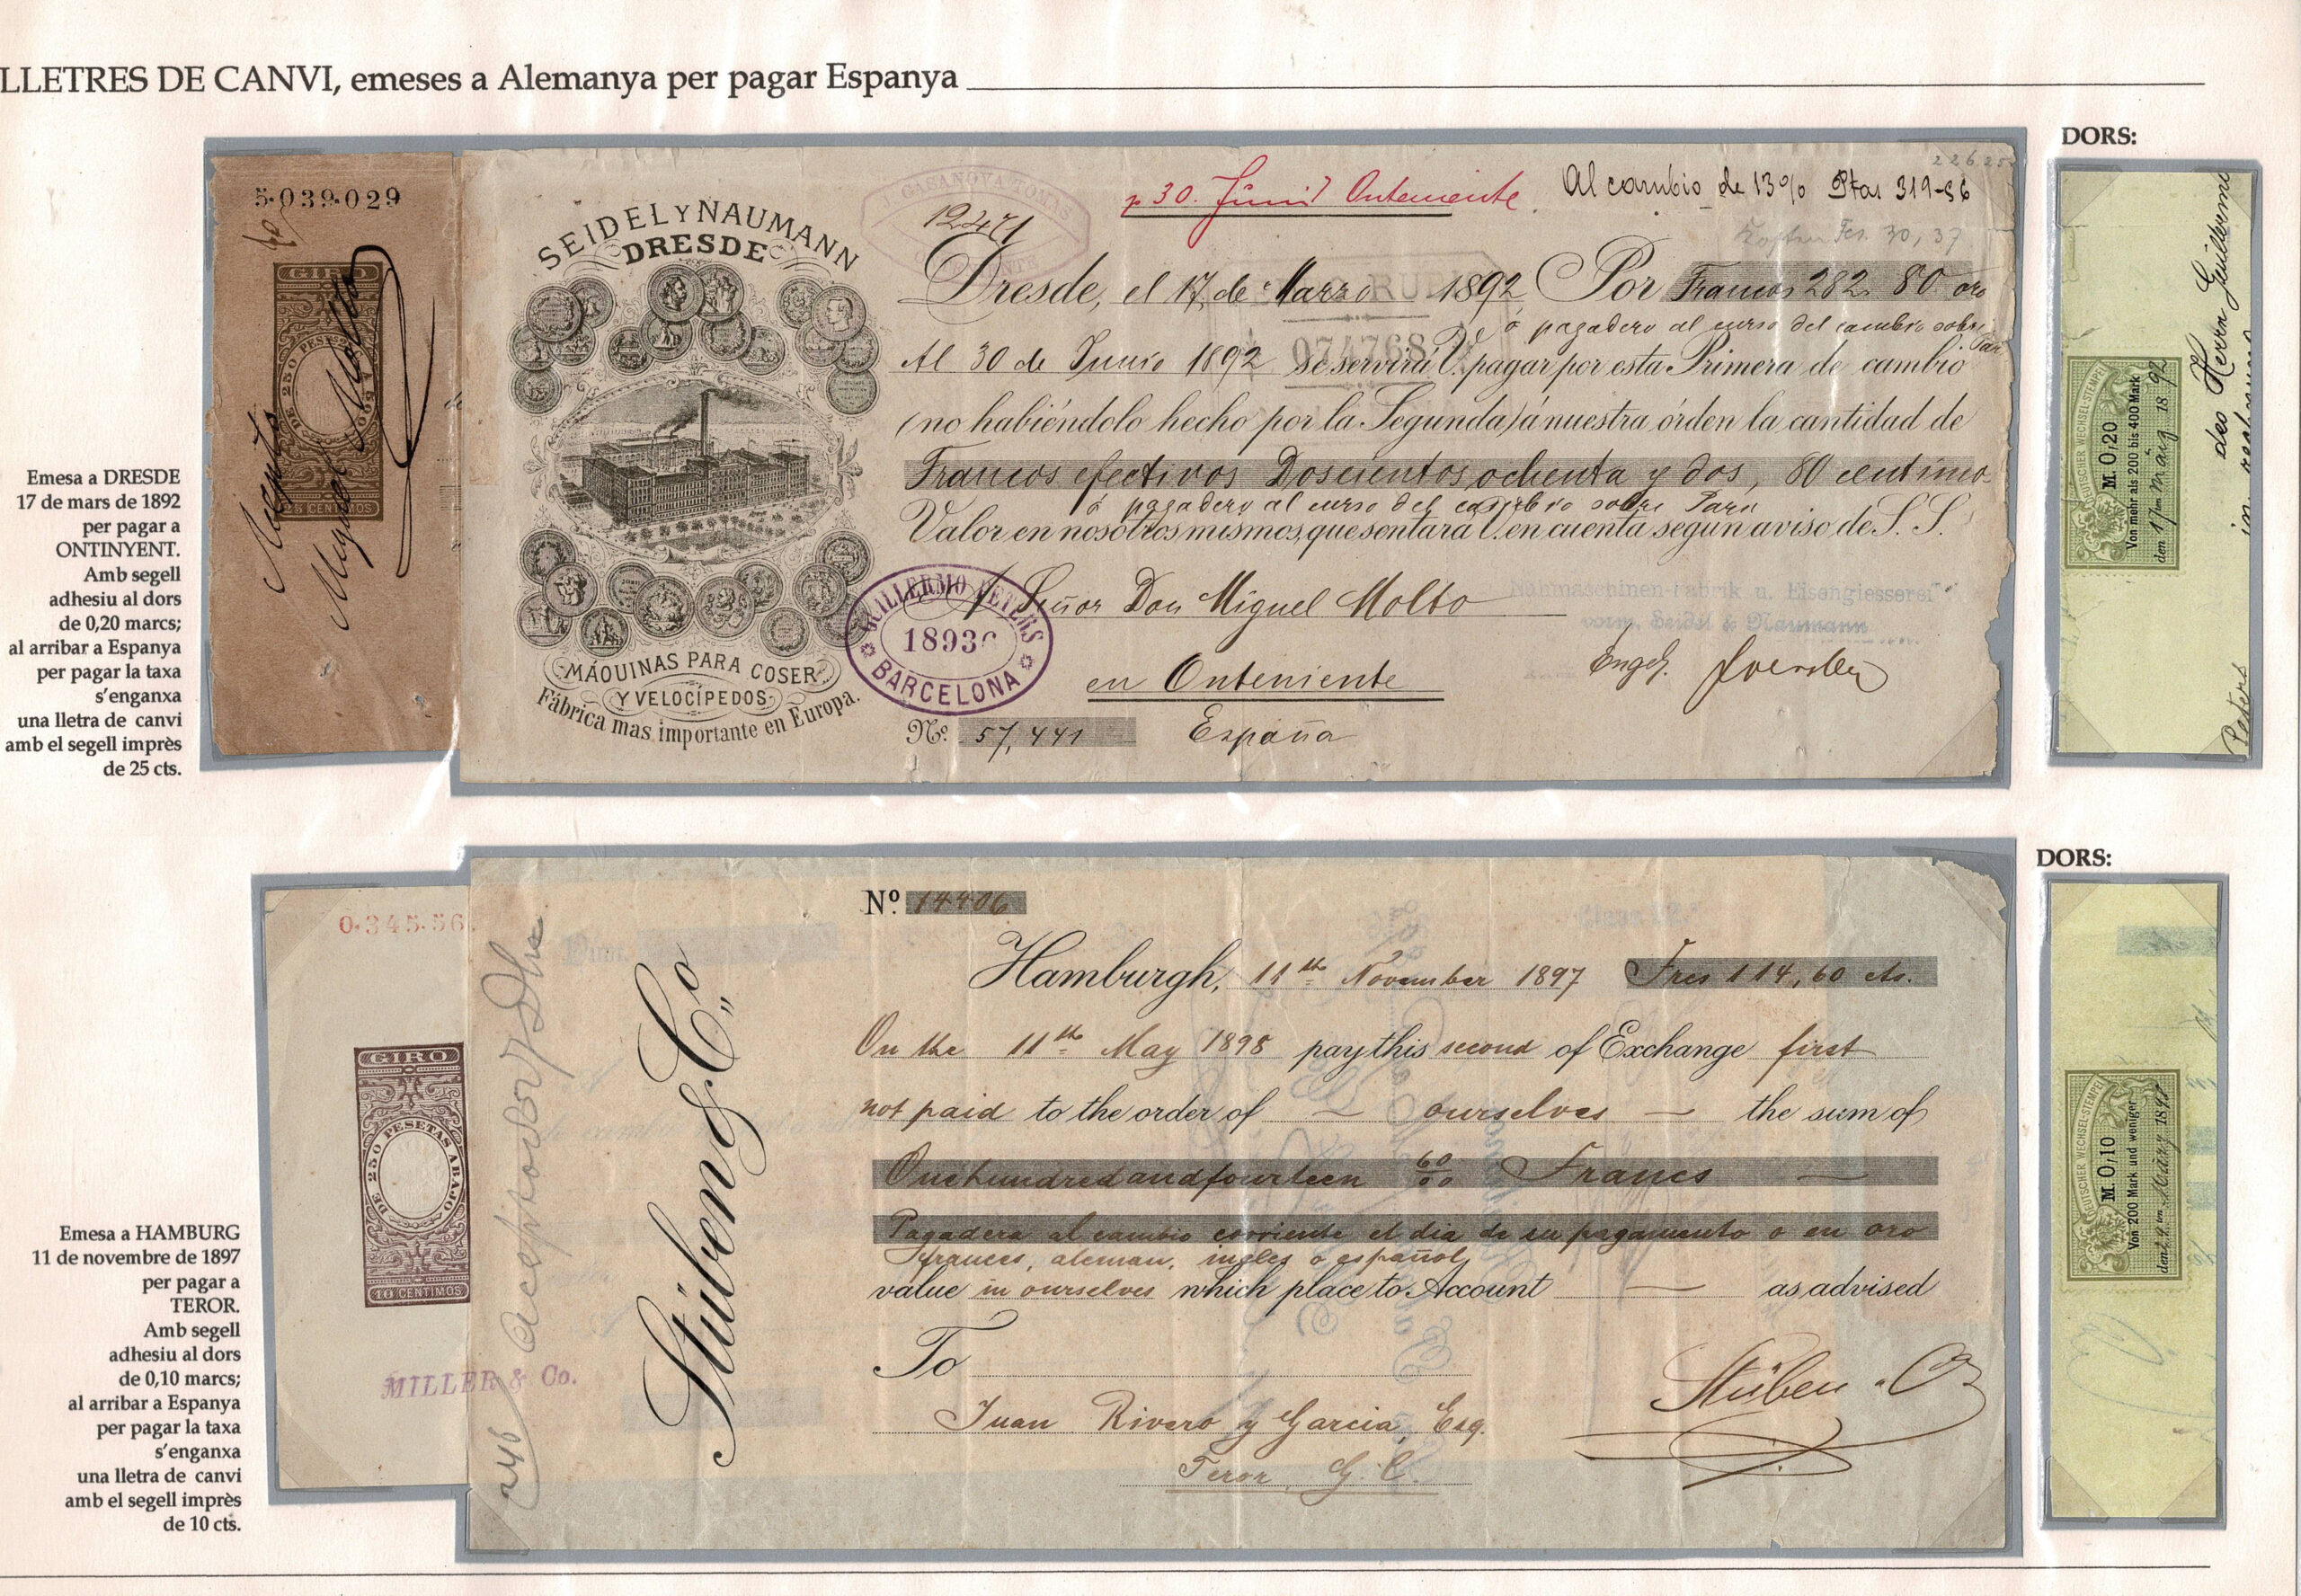 LLETRES DE CANVI, emeses a Alemanya per pagar Espanya
DORS:
5·039·029
GIRO
DE 250 PESETAS
25 CENTIMOS
Acepto
Miguel Molto
SEIDEL Y NAUMANN
DRESDE
MÁQUINAS PARA COSER
Y VELOCÍPEDOS
Fábrica mas importante en Europa.
12471
p 30. Juni Onteniente
Al cambio de 13% Ptas 319-56
226.25
Dresde, el 17, de Marzo 1892 Por Francos 282. 80 oro
ó pagadero al curso del cambio sobre Paris
074768
Al 30 de Junio 1892 se servirá V. pagar por esta Primera de cambio
(no habiéndolo hecho por la Segunda) á nuestra órden la cantidad de
Francos efectivos Doscientos ochenta y dos, 80 centimos
ó pagadero al curso del cambio sobre Paris
Valor en nosotros mismos, que sentará V. en cuenta según aviso de S. S.
GUILLERMO PETERS
BARCELONA
Señor Don Miguel Molto
Nähmaschinen-Fabrik u. Eisengiesserei
vorm. Seidel & Naumann
en Onteniente
Nº 57,441
España
DEUTSCHER WECHSEL-STEMPEL
M. 0,20
Von mehr als 200 bis 400 Mark
den 17ten März 1892
des Herrn Guillermo
Peters
Emesa a DRESDE
17 de mars de 1892
per pagar a
ONTINYENT.
Amb segell
adhesiu al dors
de 0,20 marcs;
al arribar a Espanya
per pagar la taxa
s'enganxa
una lletra de canvi
amb el segell imprès
de 25 cts.
DORS:
0·345·56
GIRO
DE 250 PESETAS ABAJO
10 CENTIMOS
MILLER & Co.
Stüben & Co
Nº 14406
Hamburgh, 11th November 1897 Frcs 114,60 cts.
On the 11th May 1898 pay this second of Exchange first
not paid to the order of — ourselves — the sum of
One hundred and fourteen 60/00 Francs —
Pagadera al cambio corriente el dia de su pagamento o en oro
frances, aleman, ingles o español,
value in ourselves which place to Account — as advised
To
Juan Rivero y Garcia, Esq.
Teror G. C.
Stüben & Co
DEUTSCHER WECHSEL-STEMPEL
M. 0,10
Von 200 Mark und weniger
Emesa a HAMBURG
11 de novembre de 1897
per pagar a
TEROR.
Amb segell
adhesiu al dors
de 0,10 marcs;
al arribar a Espanya
per pagar la taxa
s'enganxa
una lletra de canvi
amb el segell imprès
de 10 cts.